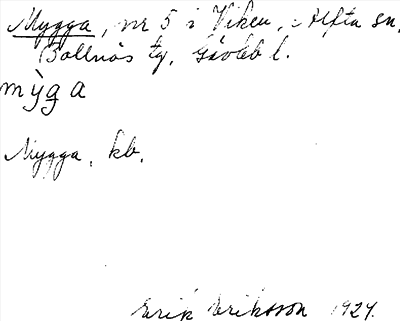 Mygga, nr 5 i Viken, Alfta sn,
Bollnäs tg, Gävleb l.
mỳga
Mygga, kb.
Erik Eriksson 1924.